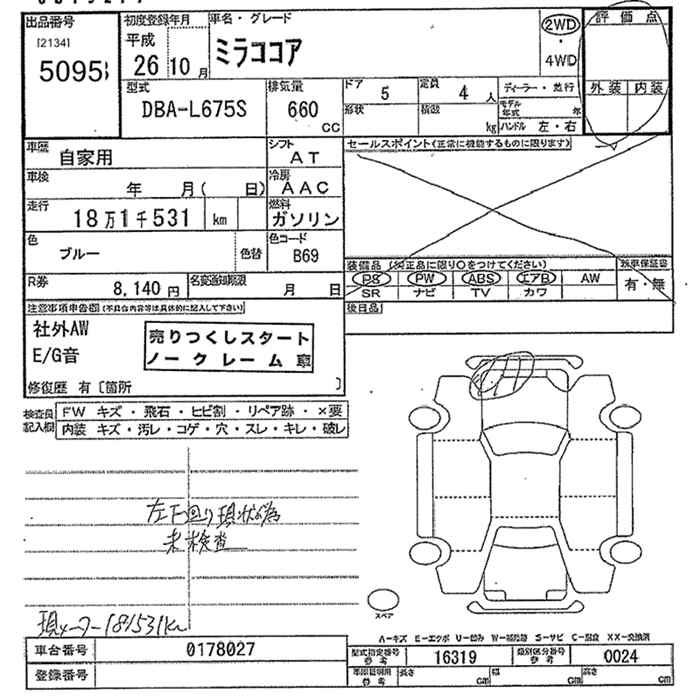 出品番号 初度登録年月 車名・グレード 2WD・4WD 評価点
[2134] 平成 ミラココア
5095 26年10月
外装 内装
型式 排気量 ドア 5 定員 4 人 ディーラー・並行
DBA-L675S 660 cc 形状 積載 kg モデル年式 年
ハンドル 左・右
車歴 自家用 シフト AT セールスポイント(正常に機能するものに限ります)
車検 年 月( 日) 冷房 AAC
走行 18万1千531 km 燃料 ガソリン
色 ブルー 色替 色コード B69
装備品 (純正品に限り○をつけてください) 新車保証書
PS PW ABS エアB AW 有・無
SR ナビ TV カワ
R券 8,140円 名変通知期限 月 日
後日品
注意事項申告欄(不具合内容等は具体的に記入して下さい)
社外AW 売りつくしスタート
E/G音 ノークレーム車
修復歴 有〔箇所 〕
検査員記入欄 FW キズ・飛石・ヒビ割・リペア跡・×要
内装 キズ・汚レ・コゲ・穴・スレ・キレ・破レ
左下回り現状為
未検査
現メーター181531km
スペア
A-キズ E-エクボ U-凹み W-補修跡 S-サビ C-腐食 XX-交換済
車台番号 0178027
型式指定番号 参考 16319 類別区分番号 参考 0024
登録番号
車庫証明用 参考 長さ cm 幅 cm 高さ cm